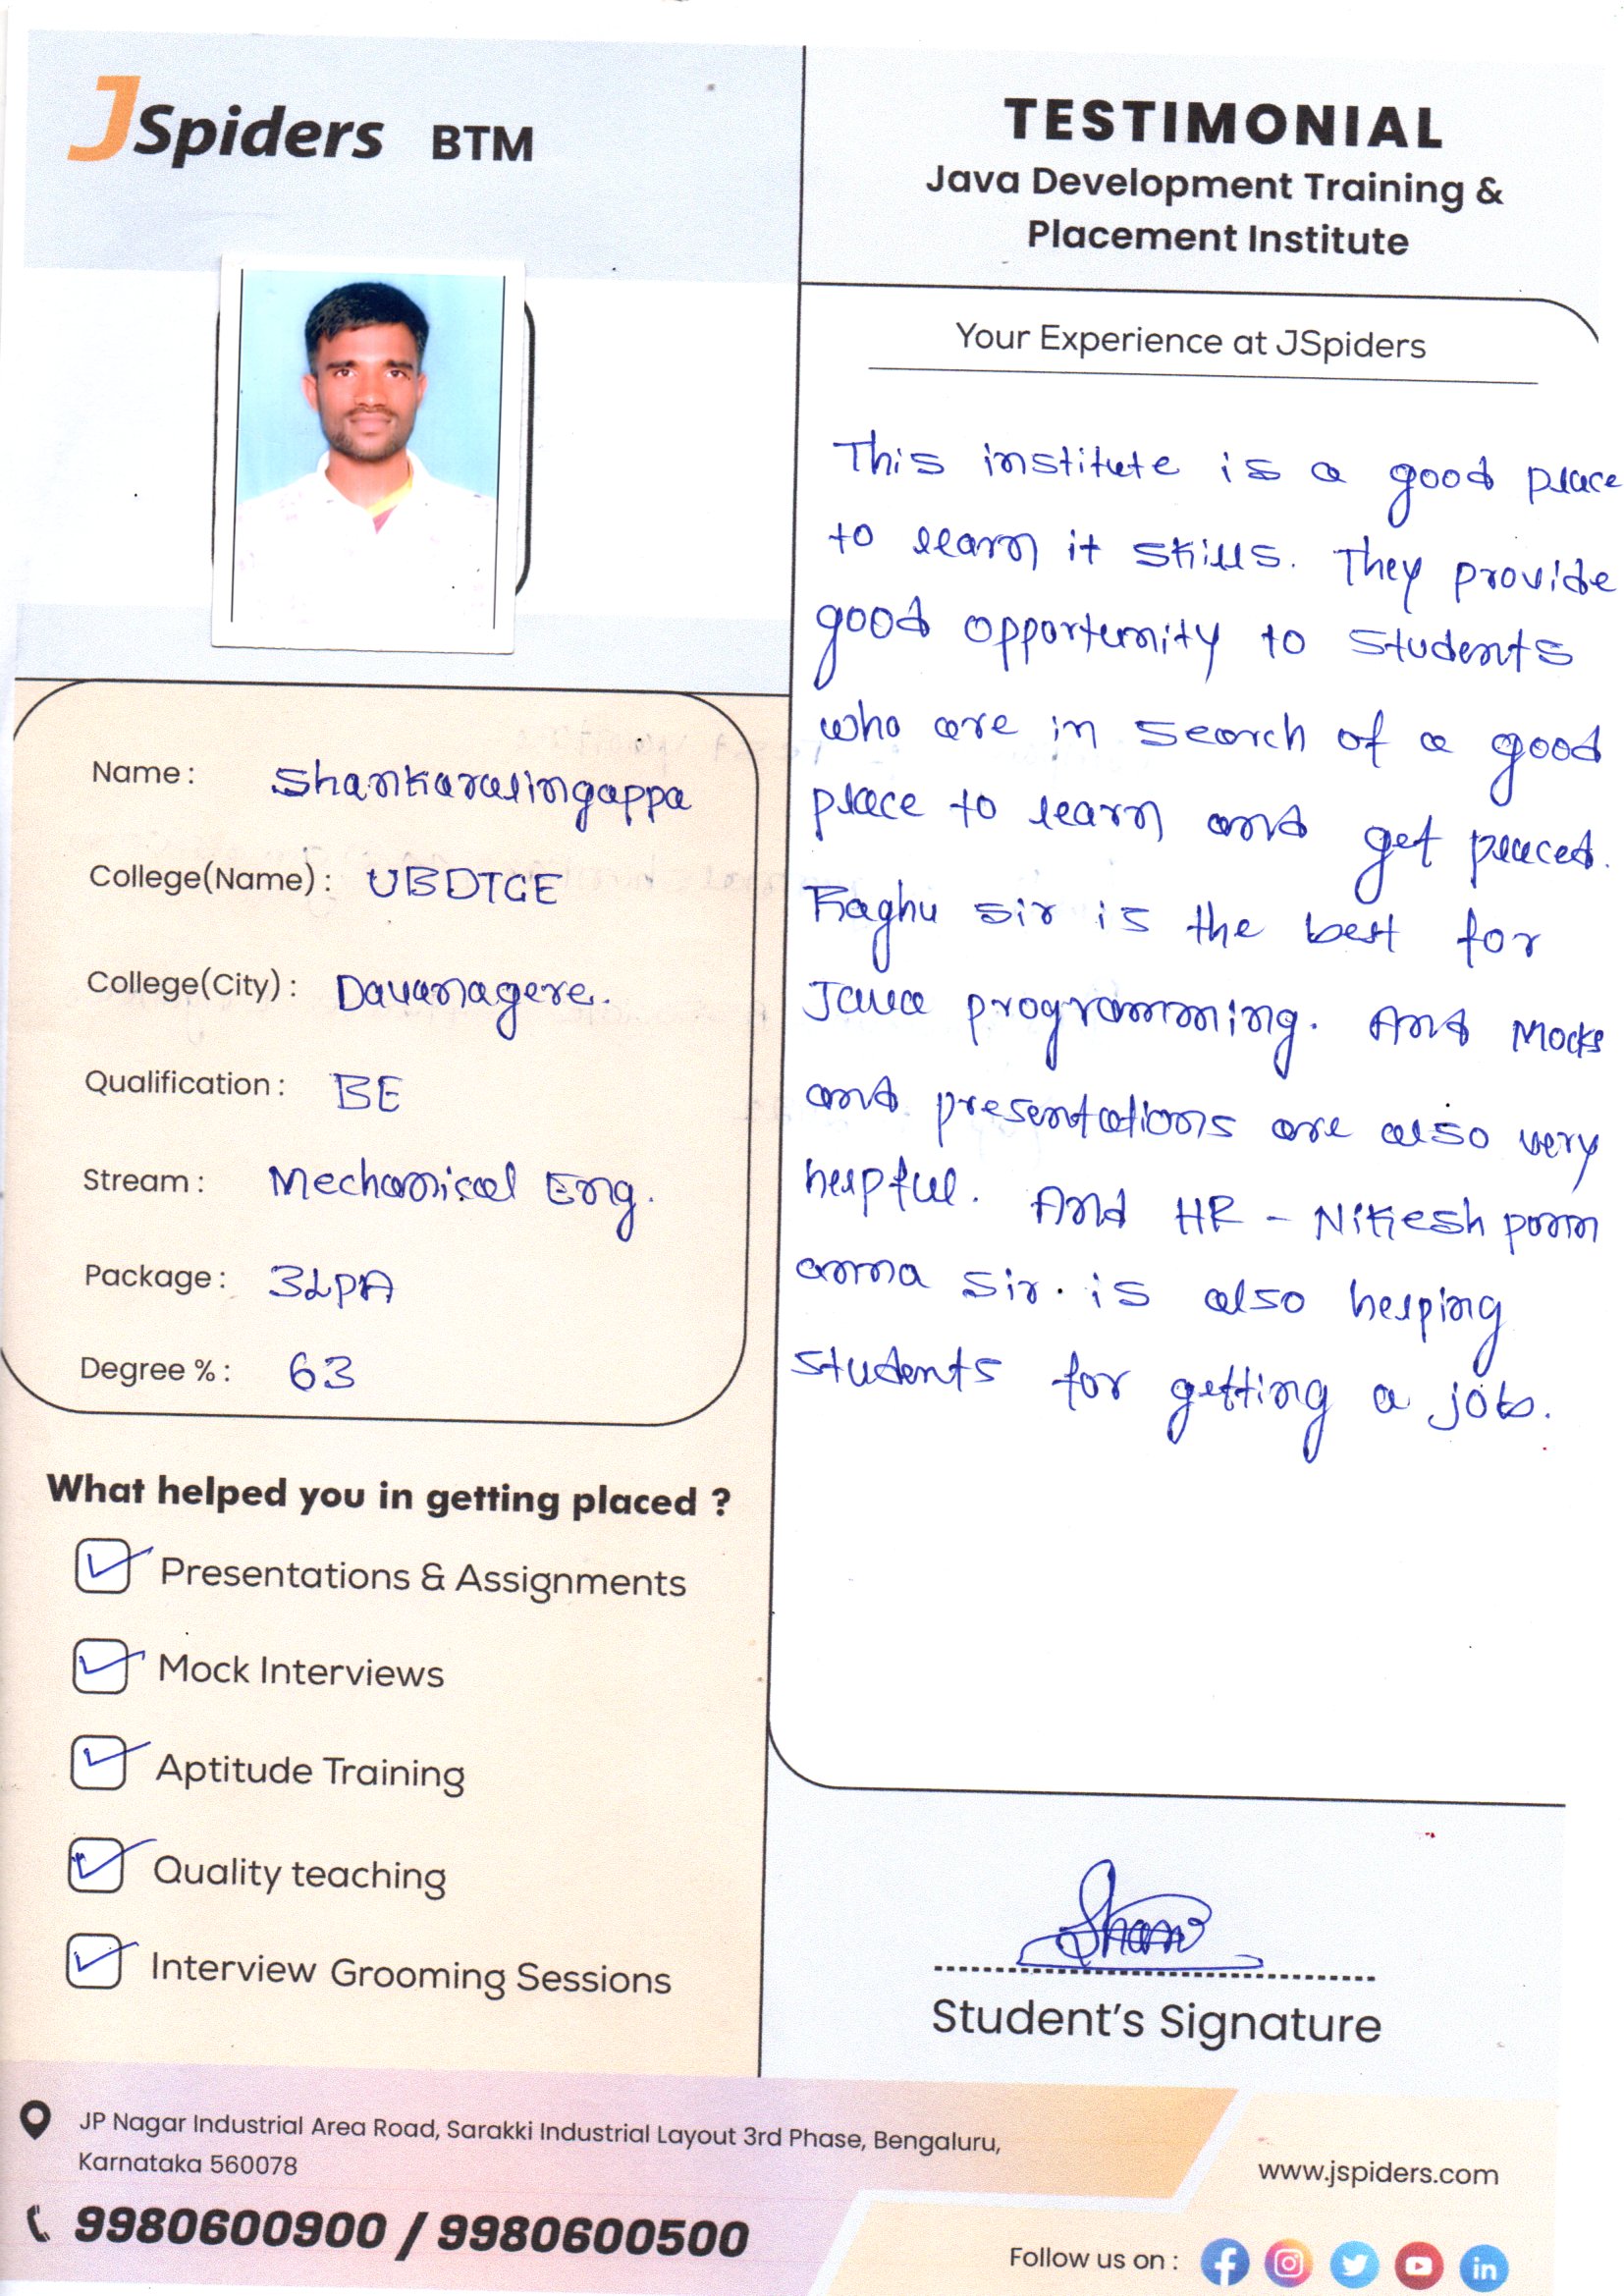 JSpiders BTM
TESTIMONIAL
Java Development Training &
Placement Institute
Your Experience at JSpiders
This institute is a good place
to learn it skills. They provide
good opportunity to students
who are in search of a good
place to learn and get placed.
Raghu sir is the best for
Java programming. And Mocks
and presentations are also very
helpful. And HR - Nikesh ponn
anna sir. is also helping
students for getting a job.
Name : Shankaralingappa
College(Name) : UBDTCE
College(City) : Davanagere.
Qualification : BE
Stream : Mechanical Eng.
Package : 3LPA
Degree % : 63
What helped you in getting placed ?
Presentations & Assignments
Mock Interviews
Aptitude Training
Quality teaching
Interview Grooming Sessions
Shan
Student's Signature
JP Nagar Industrial Area Road, Sarakki Industrial Layout 3rd Phase, Bengaluru,
Karnataka 560078
9980600900 / 9980600500
www.jspiders.com
Follow us on :